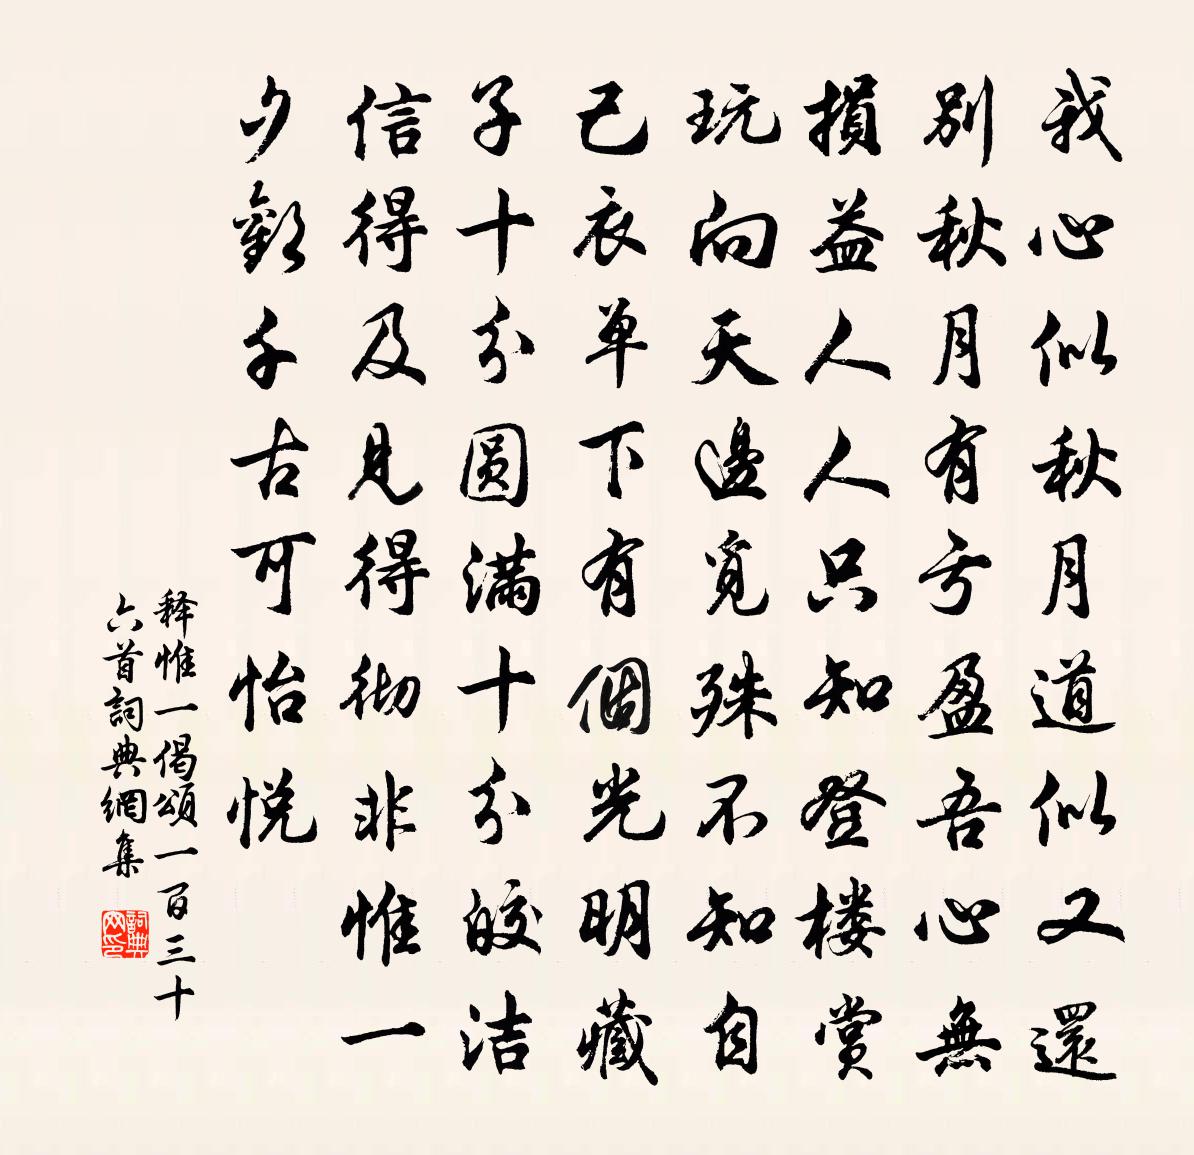 我心似秋月道似又還
別秋月有亏盈吾心無
損益人人只知登楼賞
玩向天邊覓殊不知自
己衣单下有個光明藏
子十分圆满十分皎洁
信得及見得彻非惟一
夕觀千古可怡悦
释惟一偈頌一百三十
六首詞典網集
詞典网印